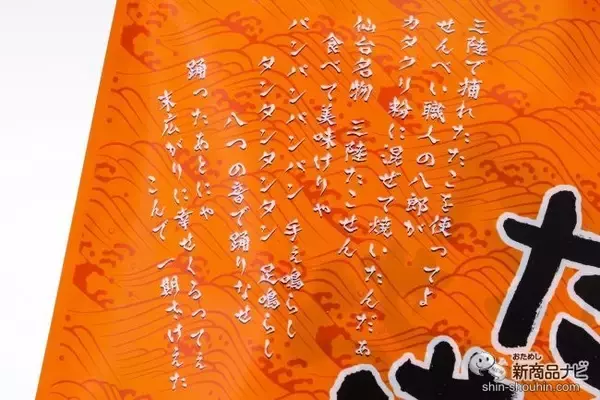 三陸で捕れたたこを使ってよ
せんべい職人の八郎が
カタクリ粉に混ぜて焼いたんだぁ
仙台名物 三陸たこせん
食べて美味けりゃ
バンバンバンバン 手え鳴らし
タンタンタンタン 足鳴らし
八つの音で踊りなせ
踊ったあとにゃ
末広がりに幸せくるってぇ
こんで一期
た
おためし
新商品ナビ
shin-shouhin.com